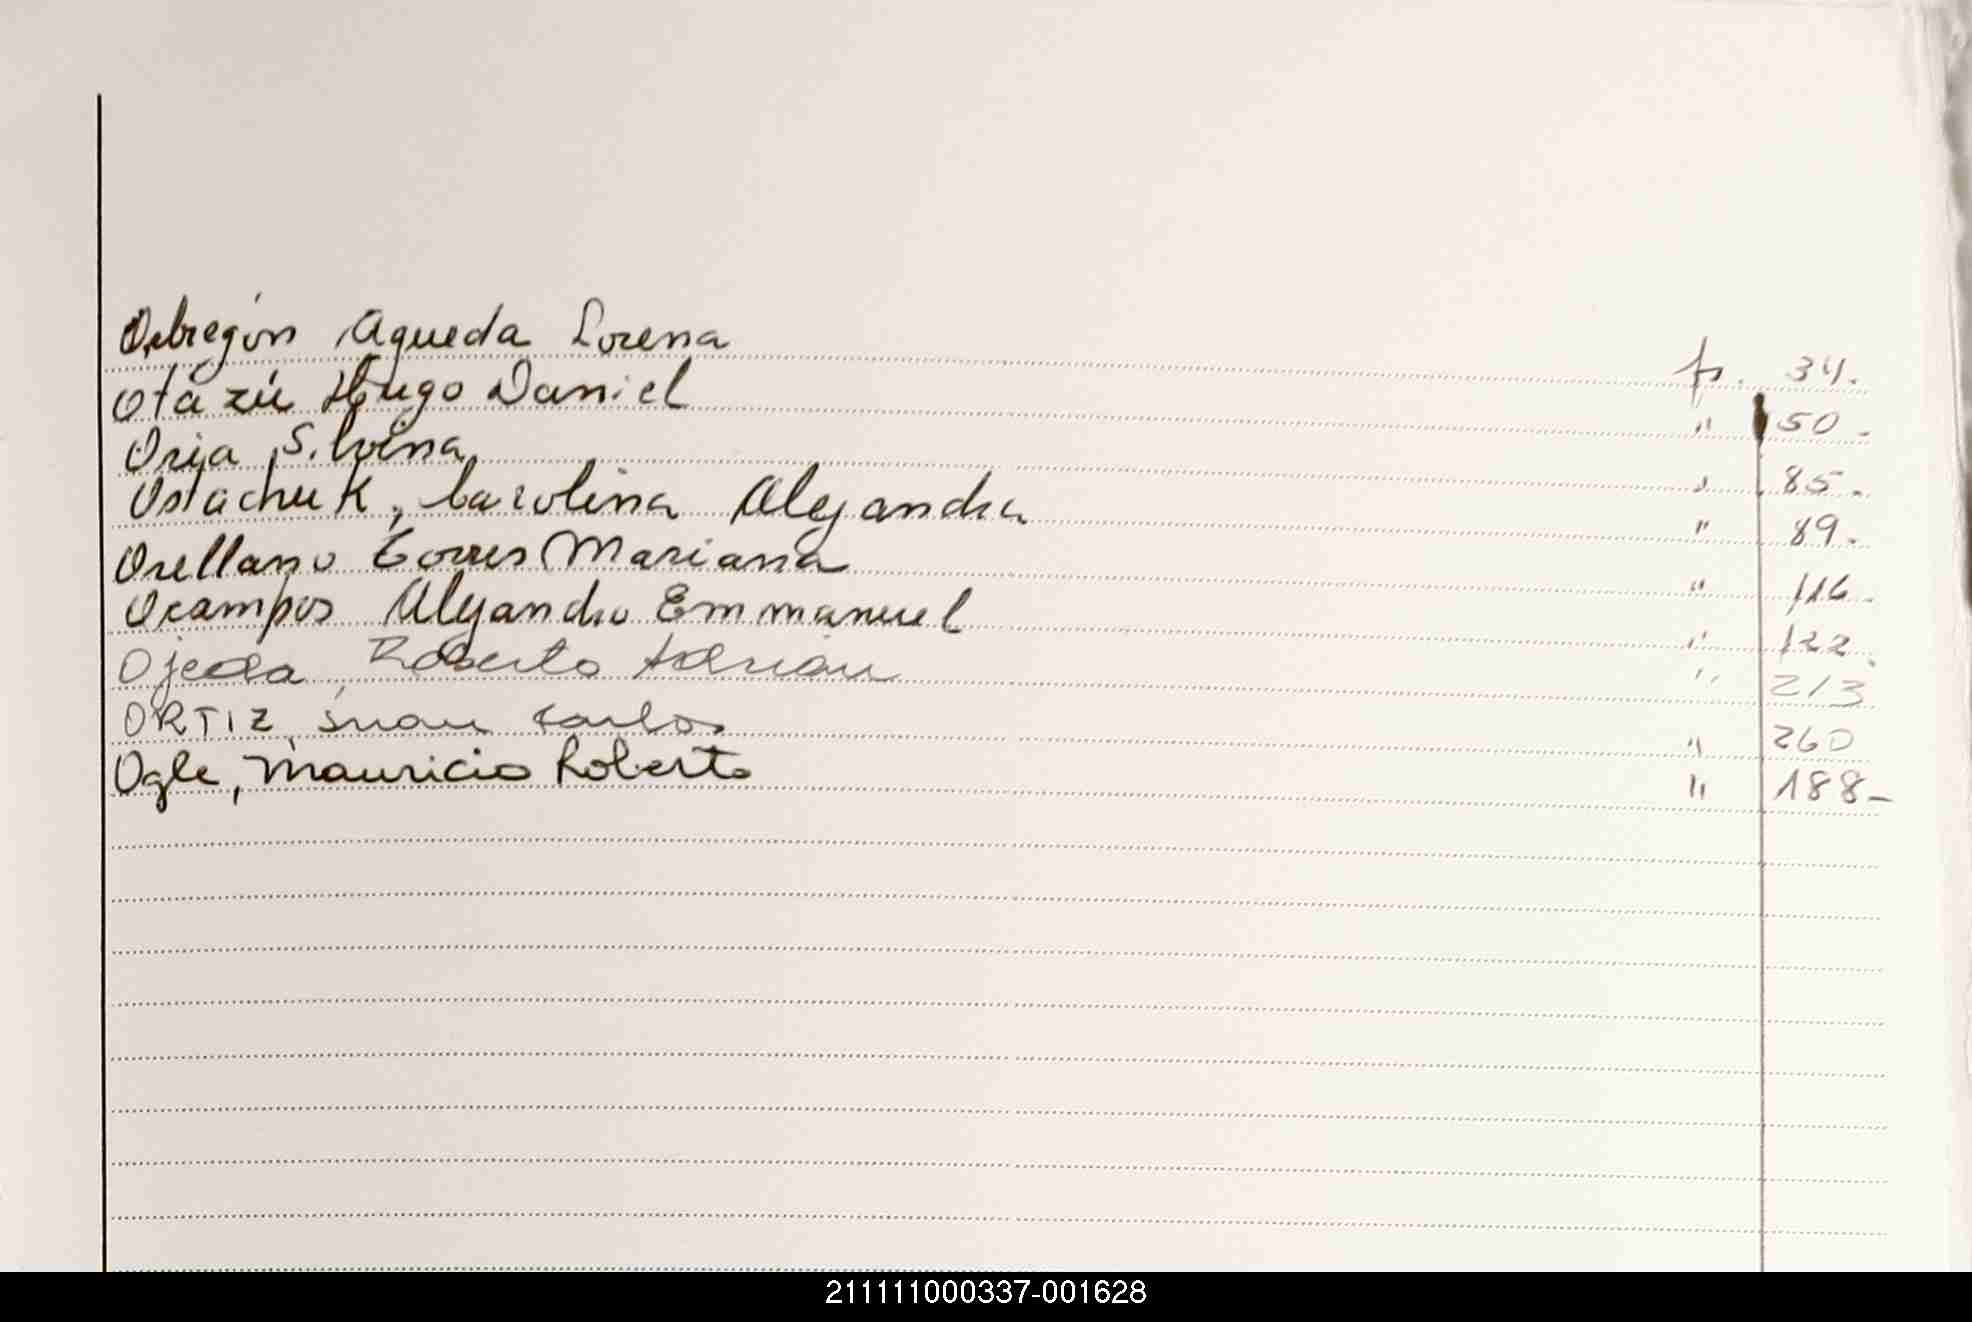 Obregón Agueda Lorena fs. 34.
Otazú Hugo Daniel " 50.
Oria Silvina " 85.
Ostachuk, Carolina Alejandra " 89.
Orellano Torres Mariana " 116.
Ocampos Alejandro Emmanuel " 122.
Ojeda, Roberto Adrian " 213
ORTIZ, Juan Carlos " 260
Ogle, Mauricio Roberto " 188-
211111000337-001628